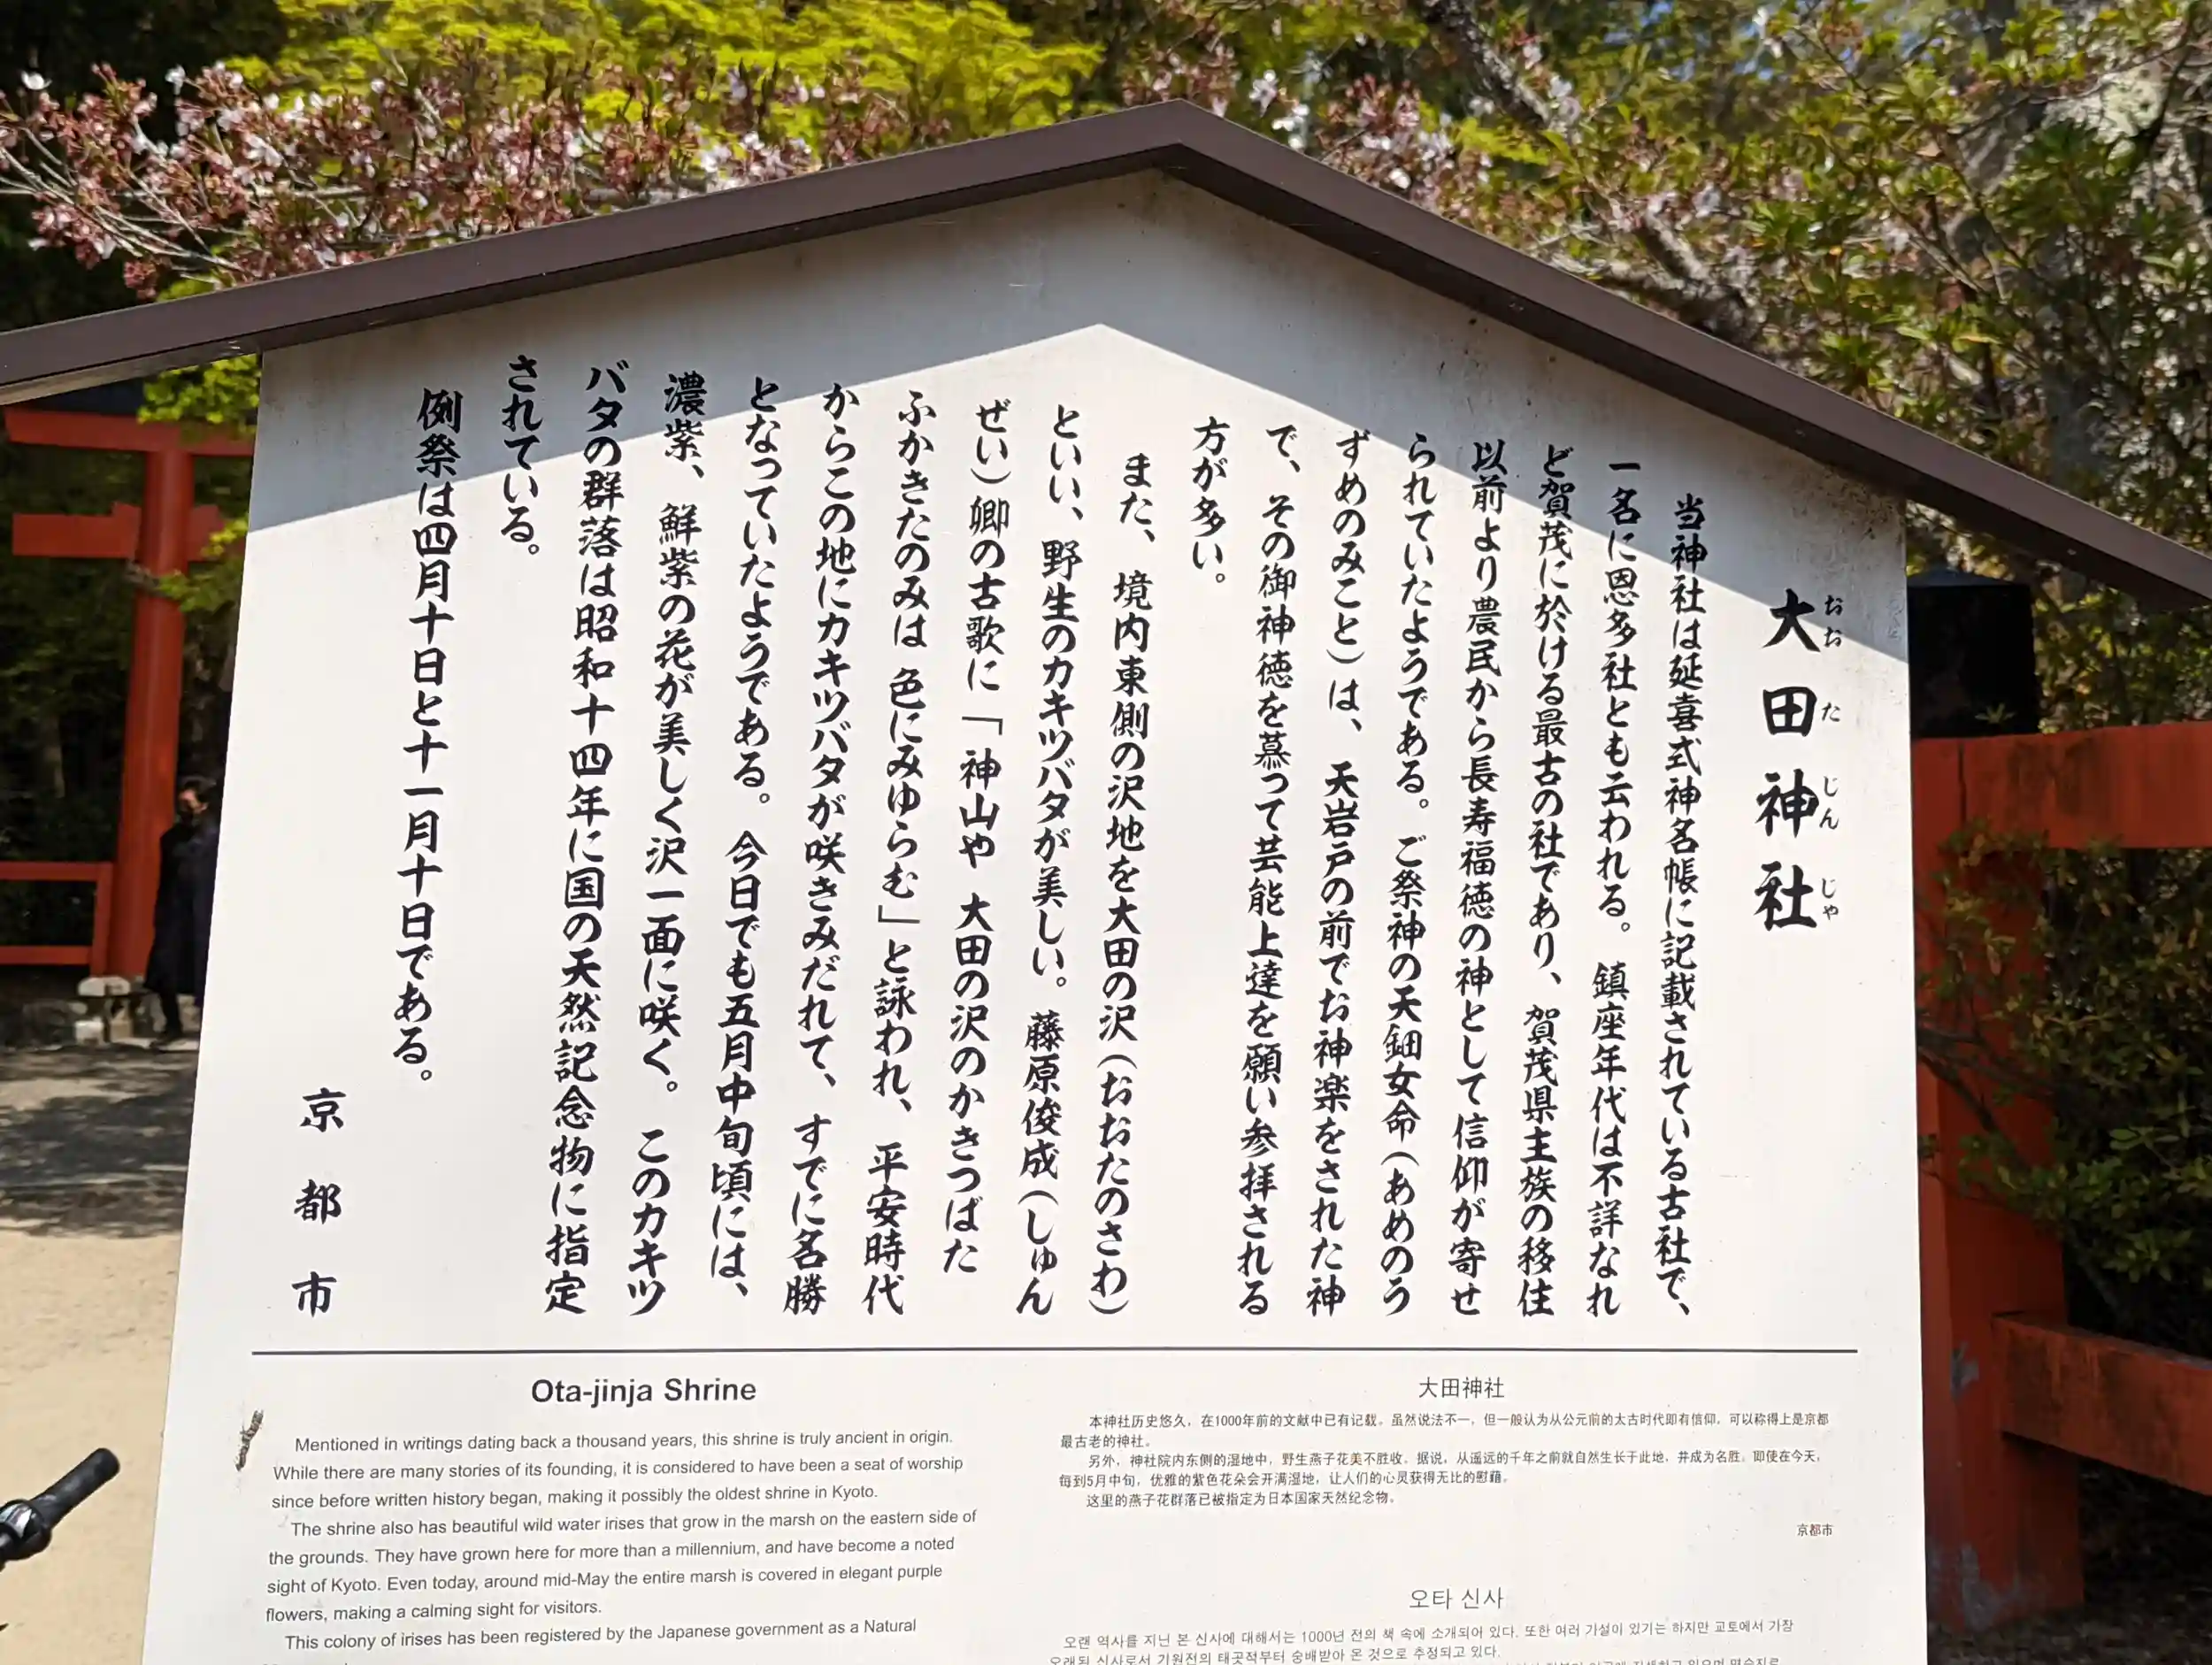 大田神社
おおたじんじゃ
当神社は延喜式神名帳に記載されている古社で、
一名に恩多社とも云われる。鎮座年代は不詳なれ
ど賀茂に於ける最古の社であり、賀茂県主族の移住
以前より農民から長寿福徳の神として信仰が寄せ
られていたようである。ご祭神の天鈿女命(あめのう
ずめのみこと)は、天岩戸の前でお神楽をされた神
で、その御神徳を慕って芸能上達を願い参拝される
方が多い。
また、境内東側の沢地を大田の沢(おおたのさわ)
といい、野生のカキツバタが美しい。藤原俊成(しゅん
ぜい)卿の古歌に「神山や 大田の沢のかきつばた
ふかきたのみは 色にみゆらむ」と詠われ、平安時代
からこの地にカキツバタが咲きみだれて、すでに名勝
となっていたようである。今日でも五月中旬頃には、
濃紫、鮮紫の花が美しく沢一面に咲く。このカキツ
バタの群落は昭和十四年に国の天然記念物に指定
されている。
例祭は四月十日と十一月十日である。
京都市
Ota-jinja Shrine
Mentioned in writings dating back a thousand years, this shrine is truly ancient in origin.
While there are many stories of its founding, it is considered to have been a seat of worship
since before written history began, making it possibly the oldest shrine in Kyoto.
The shrine also has beautiful wild water irises that grow in the marsh on the eastern side of
the grounds. They have grown here for more than a millennium, and have become a noted
sight of Kyoto. Even today, around mid-May the entire marsh is covered in elegant purple
flowers, making a calming sight for visitors.
This colony of irises has been registered by the Japanese government as a Natural
大田神社
本神社历史悠久，在1000年前的文献中已有记载。虽然说法不一，但一般认为从公元前的太古时代即有信仰，可以称得上是京都
最古老的神社。
另外，神社院内东侧的湿地中，野生燕子花美不胜收。据说，从遥远的千年之前就自然生长于此地，并成为名胜。即使在今天，
每到5月中旬，优雅的紫色花朵会开满湿地，让人们的心灵获得无比的慰藉。
这里的燕子花群落已被指定为日本国家天然纪念物。
京都市
오타 신사
오랜 역사를 지닌 본 신사에 대해서는 1000년 전의 책 속에 소개되어 있다. 또한 여러 가설이 있기는 하지만 교토에서 가장
오래된 신사로서 기원전의 태곳적부터 숭배받아 온 것으로 추정되고 있다.